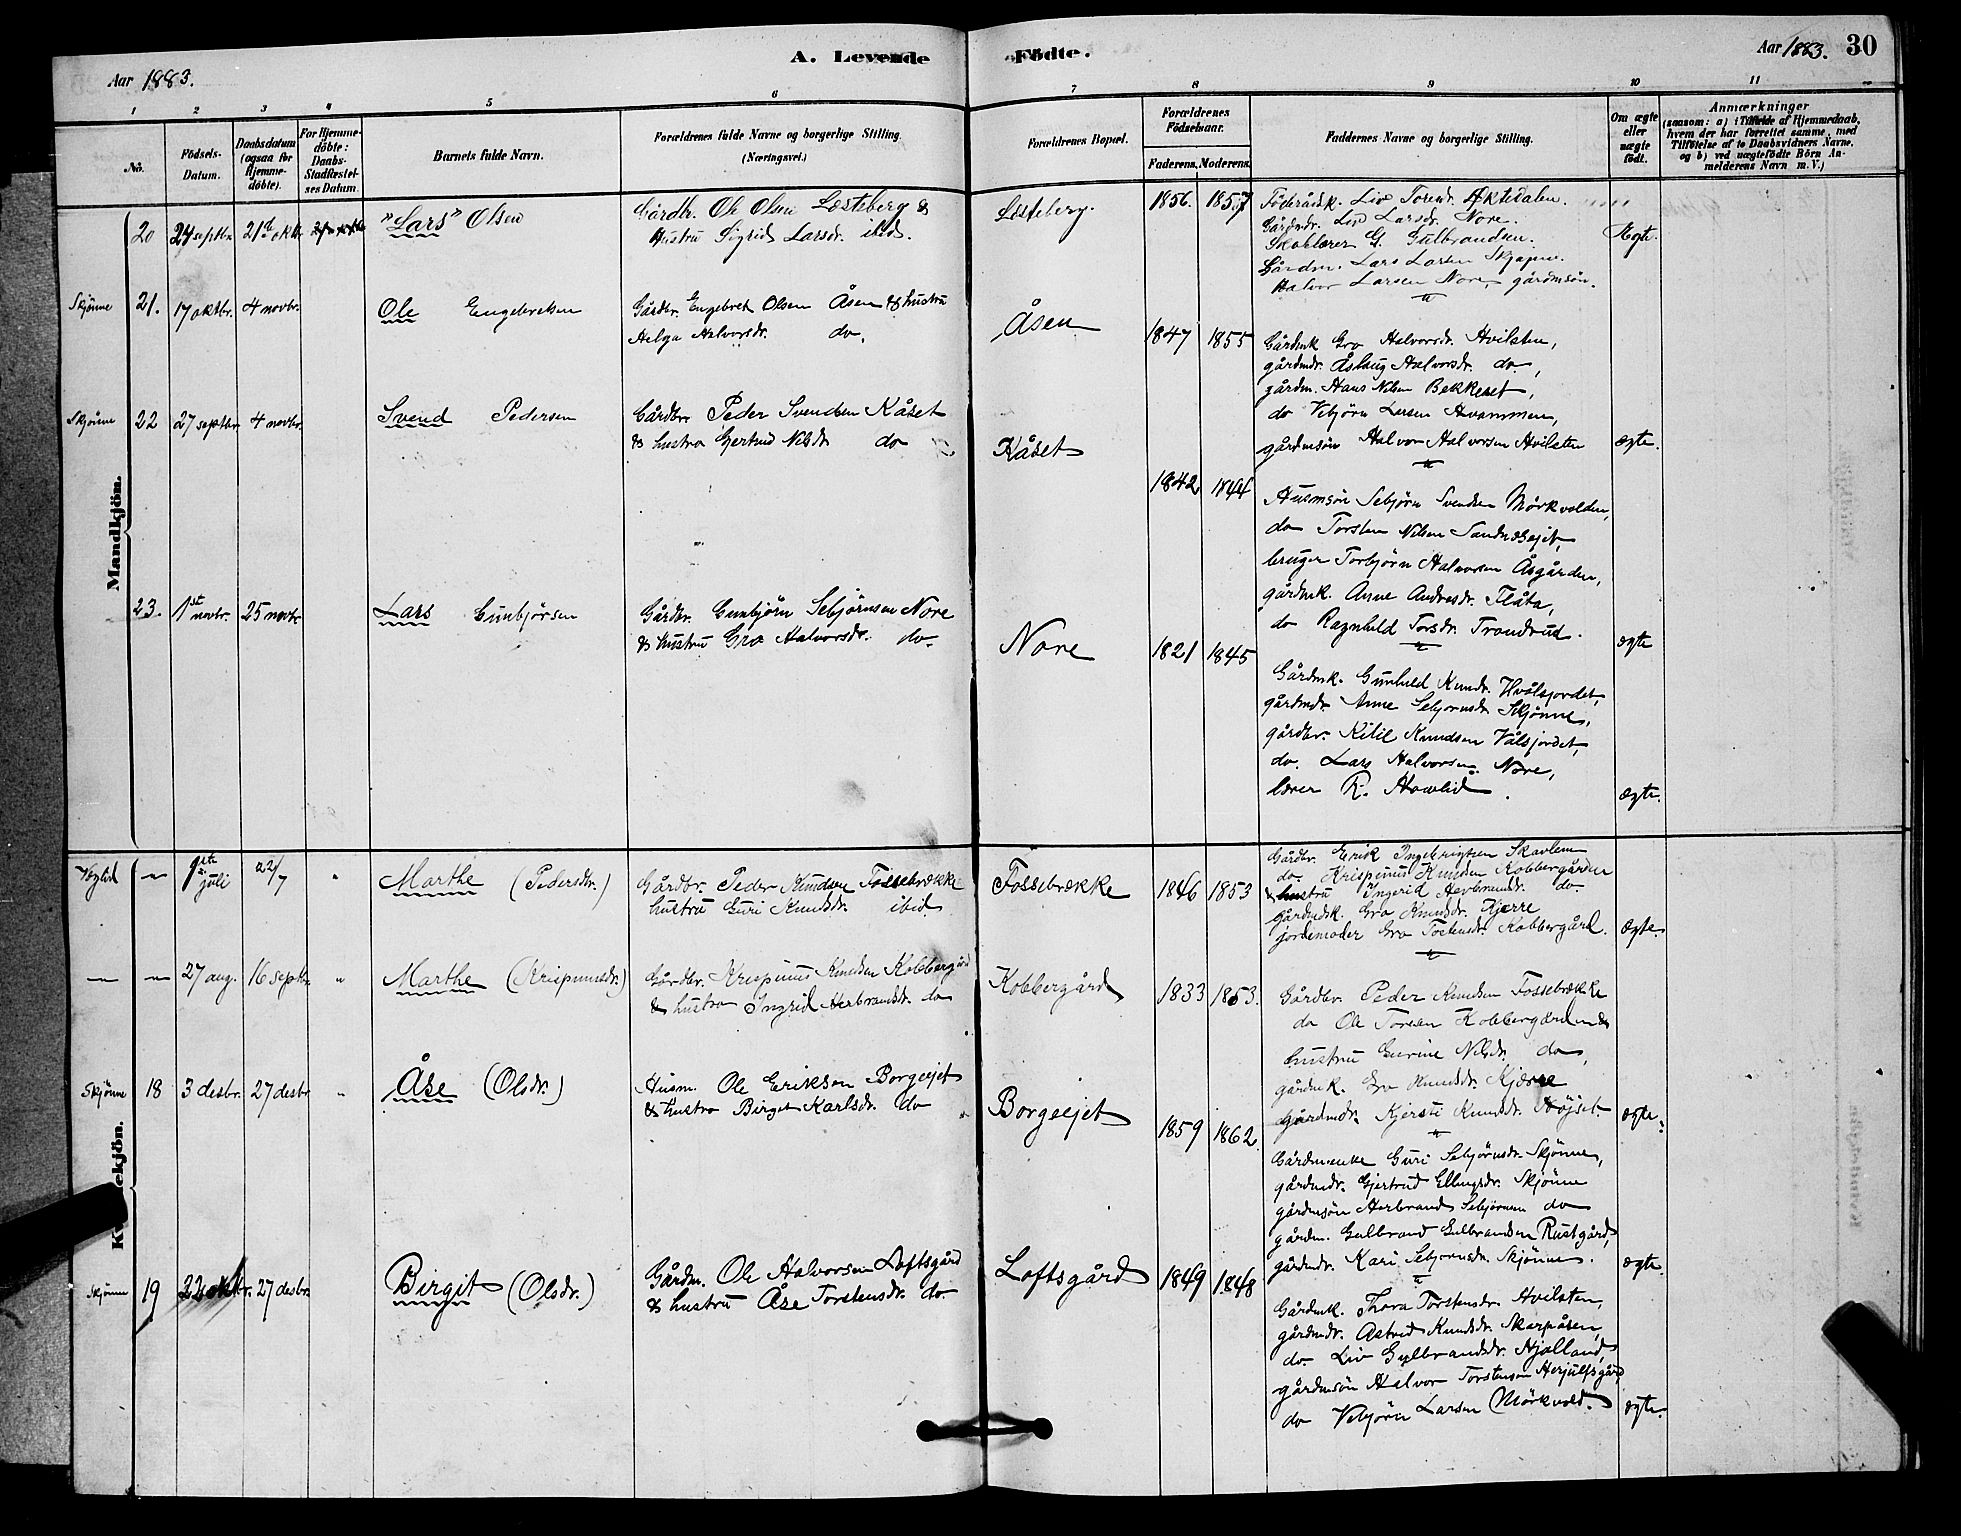 A. Levende Födte.
Aar 1883.
Aar 1883. 30
1 2 3 4 5 6 7 8 9 10 11
No.
Födsels-Datum.
Daabsdatum (ogsaa for Hjemmedöbte).
For Hjemmedöbte: Daabs-Stadfæstelses Datum.
Barnets fulde Navn.
Forældrenes fulde Navne og borgerlige Stilling. (Næringsvei.)
Forældrenes Bopæl.
Forældrenes Födselsaar.
Faderens. Moderens.
Faddernes Navne og borgerlige Stilling.
Om ægte eller uægte födt.
Anmærkninger
(saasom: a) i Tilfælde af Hjemmedaab, hvem der har forrettet samme, med Tilföielse af to Daabsvidners Navne, og b) ved uægtefödte Börn Anmelderens Navn m.V.)
Mandkjön.
20 24 septbr. 21d oktb.
"Lars" Olsen
Gårdbr. Ole Olsen Læsteberg &
hustru Sigrid Larsdr. ibid.
Læsteberg.
1856. 1857
Föderådsk. Liv Torend. Öktedalen.
Gårdmdr. Liv Larsdr. Nore.
Skolelærer G. Gulbrandsen.
Gårdm. Lars Larsen Skjøpne.
Halvor Larsen Nore, gårdmsön.
Ægte.
Skjönne 21. 17 oktbr. 4 novbr.
Ole Engebretsen
Gårdbr. Engebret Olsen Åsen & hustru
Helga Halvorsdr. do.
Åsen
1847 1855
Gårdmk Gro Halvorsdr. Hvilsten,
gårdmdr. Åslaug Halvorsdr. do,
gårdm. Hans Nilsen Bekkeset,
do Vebjørn Larsen Hvammen,
gårdmsön Halvor Halvorsen Hvilsten
ægte.
Skjönne 22 27 septbr. 4 novbr.
Svend Pedersen
Gårdbr. Peder Svendsen Kåset
& hustru Gjertrud Nilsdr. do
Kåset
1842 1844
Husmsön Sebjørn Svendsen Mörkvolden,
do Torsten Nilsen Sandnesejet,
bruger Torbjörn Halvorsen Åsgården,
gårdmk. Anne Andresdr. Flåta,
do Ragnhild Torsdr. Trondrud.
ægte
23. 1st novbr. 25 novbr
Lars Gunbjørsen
Gårdbr. Gunbjörn Sebjörnsen Nore
& hustru Gro Halvorsdr. do.
Nore
1821 1845
Gårdmk. Gunhild Knudr. Hvålsjordet,
gårdmdr. Anne Sebjørnsdr. Skjönne,
gårdbr. Kitil Knudsen Vålsjordet,
do. Lars Halvorsen Nore,
lærer R. Howlid.
ægte.
Kvindekjön.
Væglid 1ste juli 22/7 "
Marthe (Pedersdtr.)
Gårdbr. Peder Knudsen Fossebrække
hustru Guri Knudsdr. ibid.
Fossebrække
1846 1853
Gårdbr. Erik Ingebrigtsen Skavlem
do. Krispinus Knudsen Kobbergården
& hustru Ingerid Herbrandsdr. do.
Gårdmdsk. Gro Knudsdr. Kjerre
jordemoder Gro Tostensdr. Kobbergård.
Ægte.
27 aug. 16 septbr. "
Marthe (Krispinusdr.)
Gårdbr. Krispinus Knudsen Kobbergård
& hustru Ingrid Herbrandsdr. do
Kobbergård
1833 1853.
Gårdbr. Peder Knudsen Fossebrække
do Ole Toresen Kobbergården &
hustru Gurine Nilsdr. do,
gårdmk. Gro Knudsdr. Kjærre
Gårdmdr. Kjersti Knudsdr. Töjset
ægte.
Skjönne 18 3 desbr. 27 desbr "
Åse (Olsdr.)
Husm. Ole Eriksen Borgeejet
& hustru Birget Karlsdr. do
Borgeejet
1859 1862
Gårdmenke Guri Sebjørnsdr. Skjönne,
gårdmdr. Gjertrud Ellingsdr. Skjönne
gårdmsön Herbrand Sebjørnsen do
gårdm. Gulbrand Gulbrandsen Rustgård,
gårdmdr. Kari Sebjörnsdr. Skjönne.
ægte.
Skjönne 19 22 oktbr. 27 desbr.
Birgit (Olsdr.)
Gårdm. Ole Halvorsen Loftsgård
& hustru Åse Torstensdr. do
Loftsgård
1849 1848
Gårdmk. Thora Torstensdr. Hvilsten,
gårdmdr. Astrid Knudsdr. Skarpåsen,
do. Liv Gulbrandsdr. Hjalland,
gårdmsön Halvor Torstensen Herjulfsgård,
do Vebjörn Larsen Mörkvold.
ægte.